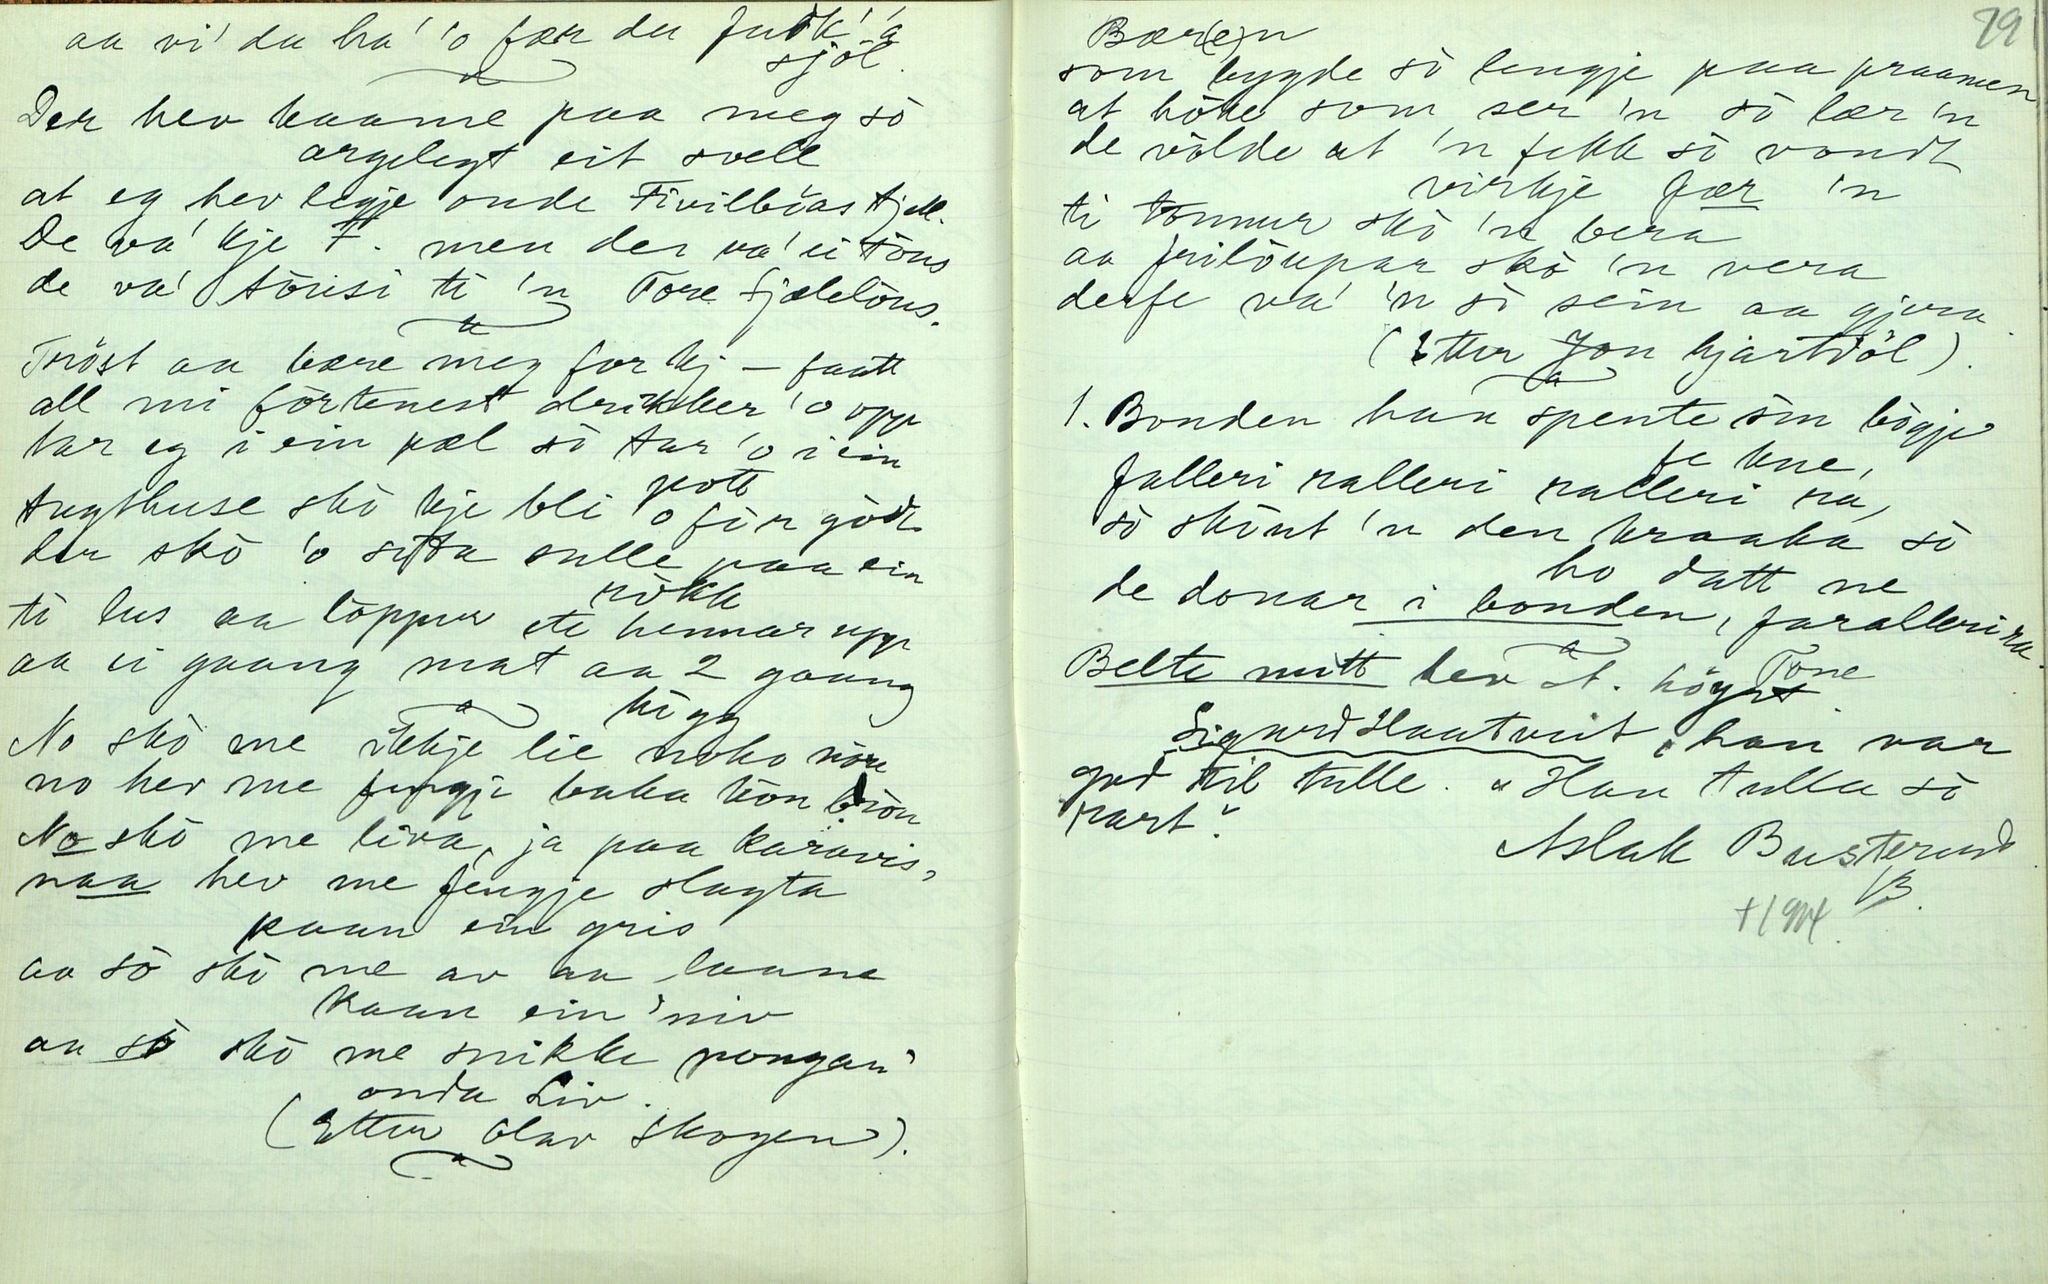 aa vi' du ha' 'o fær du fudk' 'a
sjöl.
Der hev kaame paa meg sö
argelegt eit svell
at eg hev legje onde Fivilböas fjell.
De va' kje F. men der va' ei töus
de va' töusi ti 'n Tore fjældöus.
Tröst aa bære meg for kj – faatt
all mi förtenest drikker 'o opp
tar eg i ein pæl sö tar 'o i ein
pott
tugthuse skö kje bli 'o för godt
der skö 'o sitta sulle paa ein
rökk
ti lus aa löppur ete hennar upp
aa ei gaang mat aa 2 gaang
högg
No skö me ikkje lie noko nöu
no hev me fengje baka kön bröu
No skö me liva, ja paa karavis,
naa hev me fengje slagta
kaan ein gris
aa sö skö me av aa laane
kaan ein 'niv
aa sö skö me snikke pongan'
onda Liv.
(Etter Olav Skogen).
79
Bær(e)n
som bygde sö lengje paa praamen
at höke som ser 'n sö lær 'n
de völde at 'n fekk sö vondt
virkje fær 'n
ti tonnur skö 'n bera
aa friloupar skö 'n vera
derfe va' 'n sö sein aa gjera.
(Etter Jon Hjartdöl).
1. Bonden han spente sin bögje
fe kne,
falleri ralleri ralleri ra,
sö sköut 'n den kraaka sö
ho datt ne
de donar i bonden, faralleri ra.
Belte mitt hev St. höggt Tone
Sigurd Haatveit, han var
god til tulle. "Han tulla sö
rart".
Aslak Busterud
B.
+ 1914.